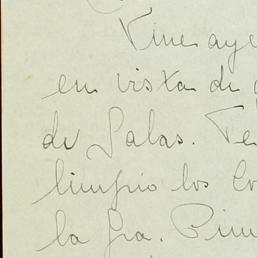 Vine aye
en vista de
de Salas. Te
limpio los Co
la Gra. Pim